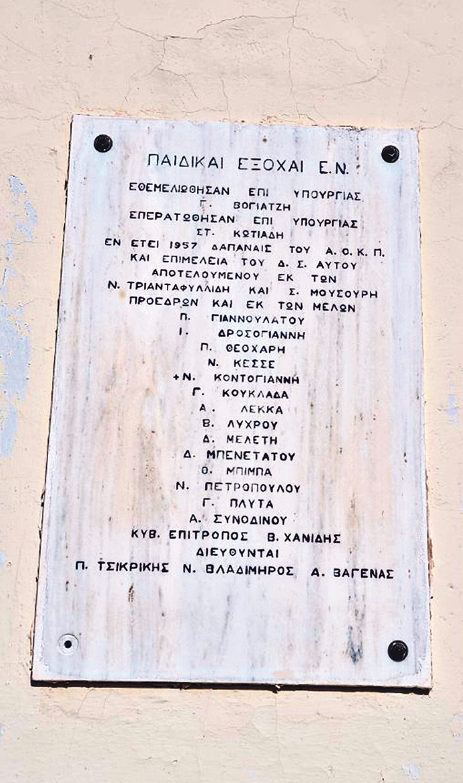 ΠΑΙΔΙΚΑΙ ΕΞΟΧΑΙ Ε.Ν.
ΕΘΕΜΕΛΙΩΘΗΣΑΝ ΕΠΙ ΥΠΟΥΡΓΙΑΣ
Γ. ΒΟΓΙΑΤΖΗ
ΕΠΕΡΑΤΩΘΗΣΑΝ ΕΠΙ ΥΠΟΥΡΓΙΑΣ
ΣΤ. ΚΩΤΙΑΔΗ
ΕΝ ΕΤΕΙ 1957 ΔΑΠΑΝΑΙΣ ΤΟΥ Α.Ο.Κ.Π.
ΚΑΙ ΕΠΙΜΕΛΕΙΑ ΤΟΥ Δ.Σ. ΑΥΤΟΥ
ΑΠΟΤΕΛΟΥΜΕΝΟΥ ΕΚ ΤΩΝ
Ν. ΤΡΙΑΝΤΑΦΥΛΛΙΔΗ ΚΑΙ Σ. ΜΟΥΣΟΥΡΗ
ΠΡΟΕΔΡΩΝ ΚΑΙ ΕΚ ΤΩΝ ΜΕΛΩΝ
Π. ΓΙΑΝΝΟΥΛΑΤΟΥ
Ι. ΔΡΟΣΟΓΙΑΝΝΗ
Π. ΘΕΟΧΑΡΗ
Ν. ΚΕΣΣΕ
+Ν. ΚΟΝΤΟΓΙΑΝΝΗ
Γ. ΚΟΥΚΛΑΔΑ
Α. ΛΕΚΚΑ
Β. ΛΥΧΡΟΥ
Δ. ΜΕΛΕΤΗ
Δ. ΜΠΕΝΕΤΑΤΟΥ
Θ. ΜΠΙΜΠΑ
Ν. ΠΕΤΡΟΠΟΥΛΟΥ
Γ. ΠΛΥΤΑ
Α. ΣΥΝΟΔΙΝΟΥ
ΚΥΒ. ΕΠΙΤΡΟΠΟΣ Β. ΧΑΝΙΔΗΣ
ΔΙΕΥΘΥΝΤΑΙ
Π. ΤΣΙΚΡΙΚΗΣ Ν. ΒΛΑΔΙΜΗΡΟΣ Δ. ΒΑΓΕΝΑΣ